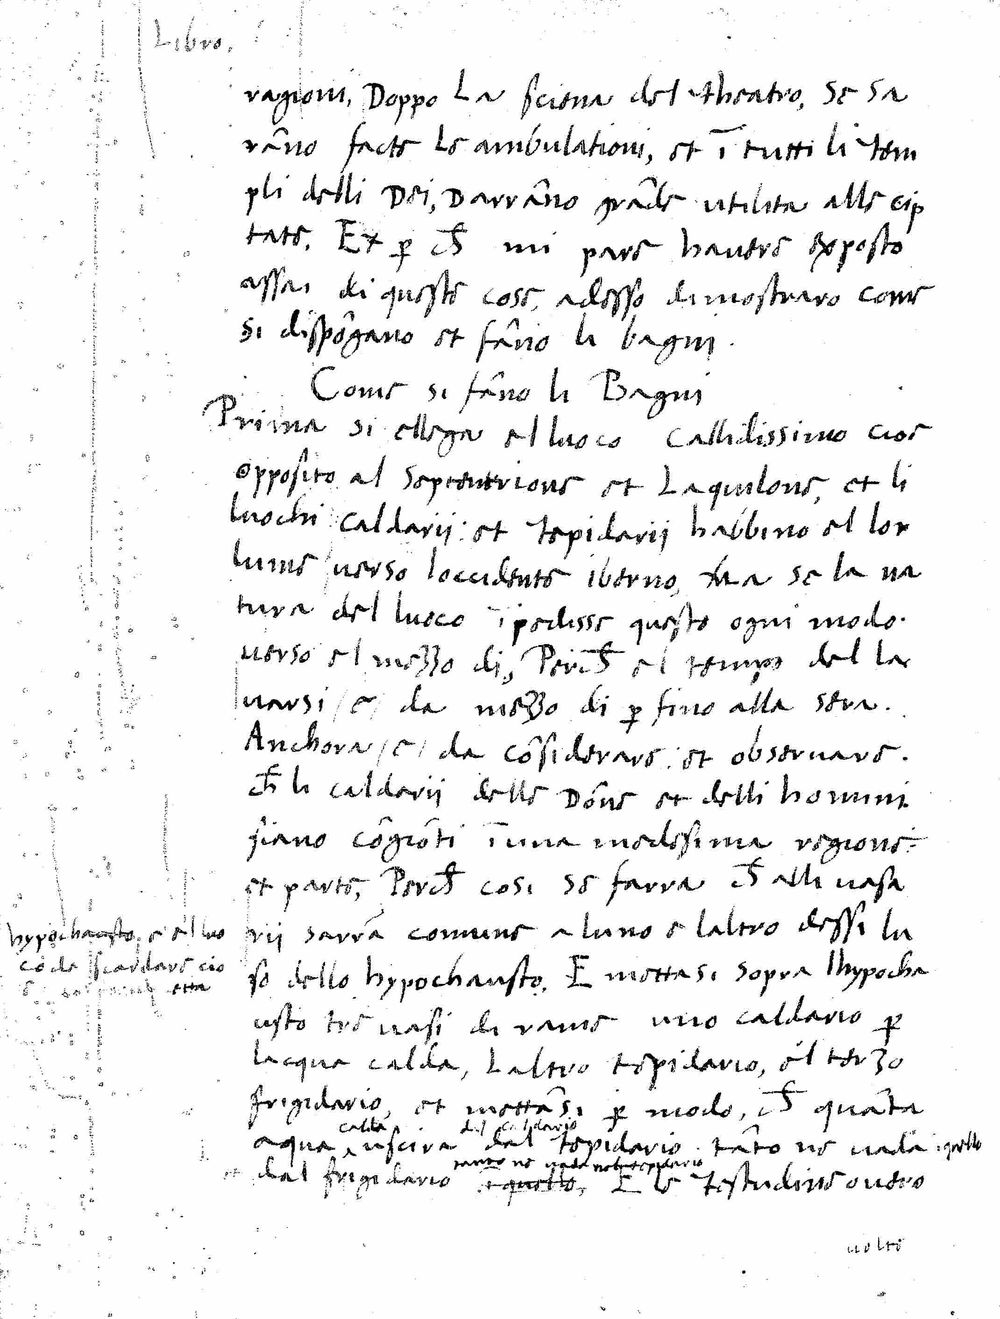 Libro.
ragioni, Doppo La sciena del theatro, se sa
rãno facte Le ambulationi, et ĩ tutti li tem
pli delli Dei, Darrãno grãde utilita alle cip
tate. Et p̱ ch̃ mi pare havere exposto
assai di queste cose, adesso dimostraro come
si dispõgano et fãno li bagni.
Come si fãno li Bagni
Prima si ellega el luoco callidissimo cioe
opposito al septentrione et Laquilone, et li
luochi caldarii et tepidarii habbino el lor
lume verso loccidente iberno, Ma se la na
tura del luoco ĩpedisse questo ogni modo
verso el mezzo di, Perch̃ el tempo del la
varsi / e / da mezzo di p̱ fino alla sera.
Anchora / e / da cõsiderare et observare.
ch̃ li caldarii delle Dõne et delli homini
siano cõgiõti ĩ una medesima regione
et parte, Perch̃ cosi se farra ch̃ alli vasa
rii sarra comune a luno e laltro dessi lu
so dello hypochausto. E mettasi sopra lhypocha
usto tre vasi di rame uno caldario p̱
lacqua calda, Laltro tepidario, el terzo
frigidario, et mettãsi p̱ modo, ch̃ quãta
calda del caldario
aqua uscira dal tepidario tãto ne vada quello
tanto ne vada nel tepidario
et dal frigidario quello, E le testudine overo
hypochausto, e el luo
co da scardare cio
e etta
volte